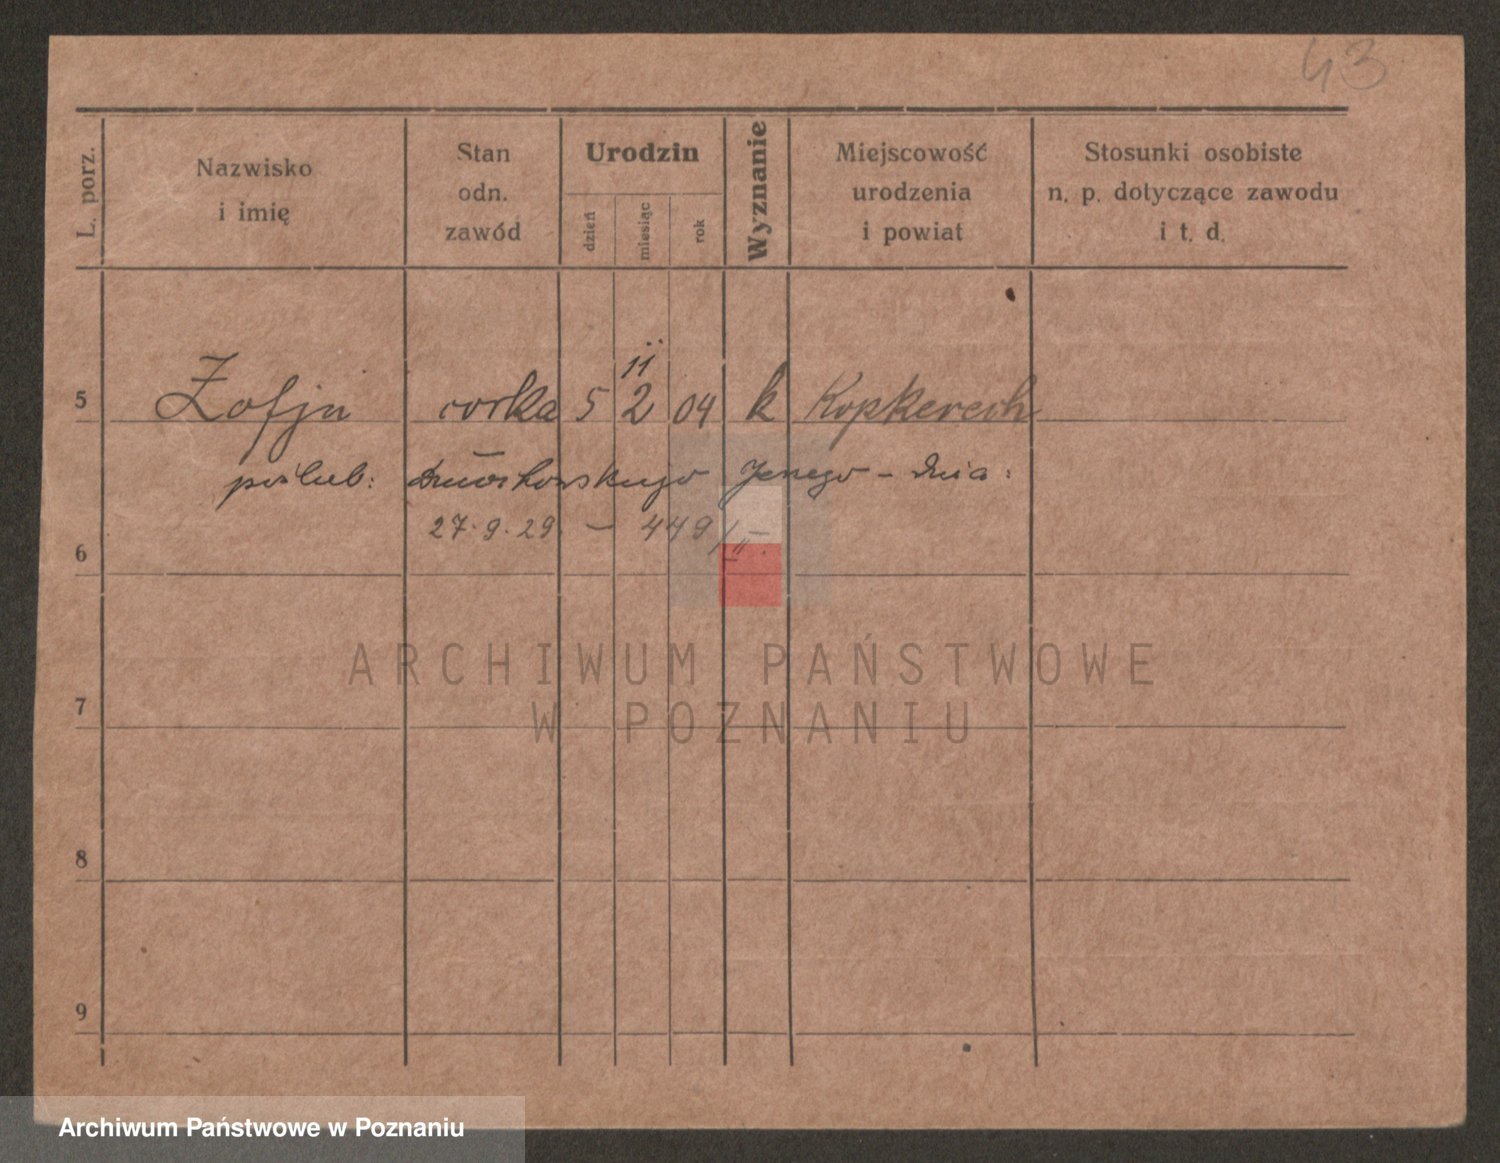 43
L. porz.
Nazwisko
i imię
Stan
odn.
zawód
Urodzin
dzień
miesiąc
rok
Wyznanie
Miejscowość
urodzenia
i powiat
Stosunki osobiste
n. p. dotyczące zawodu
i t. d.
11
5 Zofja corka 5 2 04 k
poślub: Jerzego - dnia:
27.9.29. - 449/
6
7
8
9
ARCHIWUM PAŃSTWOWE
W POZNANIU
Archiwum Państwowe w Poznaniu